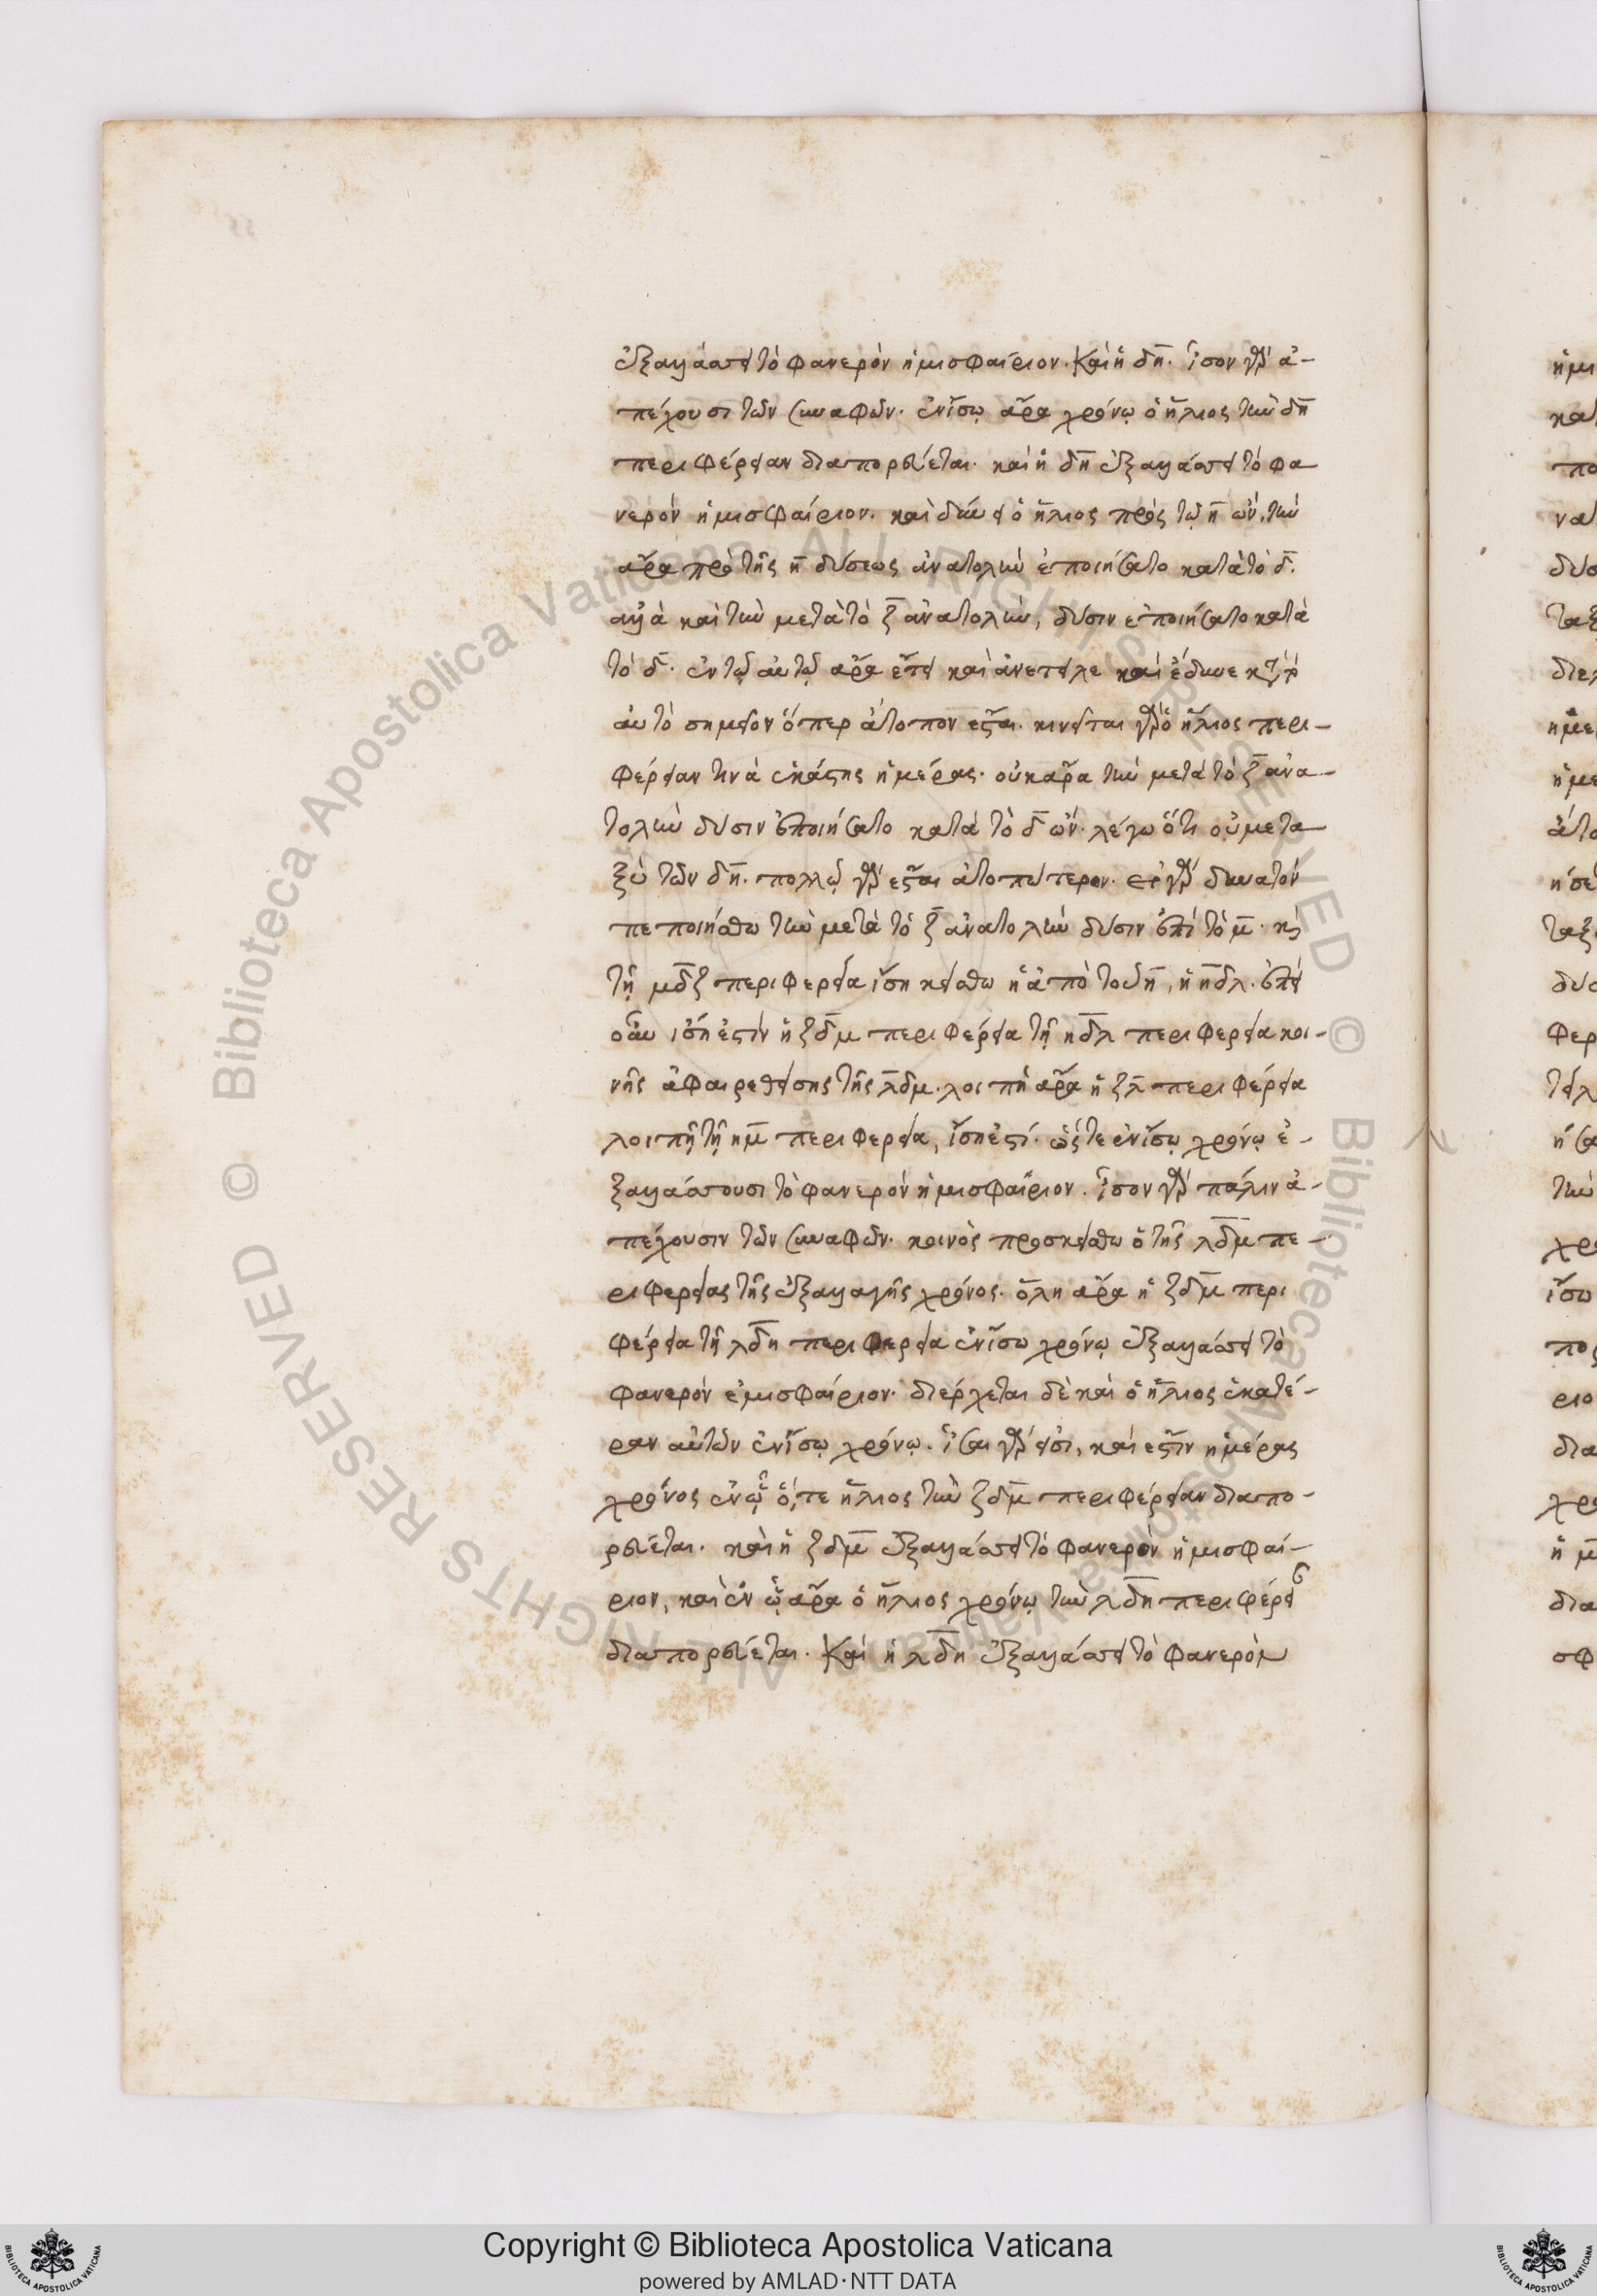 ἐξαλλάσσει τὸ φανερὸν ἡμισφαίριον. καὶ ἡ δη. ἴσον γὰρ ἀ-
πέχουσι τῶν συναφῶν. ἐν ἴσῳ ἄρα χρόνῳ ὁ ἥλιος τὴν δη
περιφέρειαν διαπορεύεται. καὶ ἡ δη ἐξαλλάσσει τὸ φα
νερὸν ἡμισφαίριον. καὶ δύνει ὁ ἥλιος πρὸς τῷ η ὤν. τὴν
ἄρα πρὸ τῆς η δύσεως ἀνατολὴν ἐποιήσατο κατὰ τὸ δ.
ἀλλὰ καὶ τὴν μετὰ τὸ ζ ἀνατολὴν, δύσιν ἐποιήσατο κατὰ
τὸ δ. ἐν τῷ αὐτῷ ἄρα ἔτει καὶ ἀνέτειλε καὶ ἔδυνε κατὰ τὸ
αὐτὸ σημεῖον ὅπερ ἄτοπον ἐστι. κινεῖται γὰρ ὁ ἥλιος περι-
φέρειαν τινὰ ἑκάστης ἡμέρας. οὐκ ἄρα τὴν μετὰ τὸ ζ ἀνα-
τολὴν δύσιν ἐποιήσατο κατὰ τὸ δ ὤν. λέγω ὅτι οὐ μετα
ξὺ τῶν δη. πολλῷ γὰρ ἐστὶν ἀτοπώτερον. εἰ γὰρ δυνατόν
πεποιήσθω τὴν μετὰ τὸ ζ ἀνατολὴν δύσιν ἐπὶ τὸ μ. καὶ
τῇ μδζ περιφερεία ἴση κείσθω ἡ ἀπὸ τοῦ η, ἡ ηδλ. ἐπεὶ
οὖν ἴση ἐστὶν ἡ ζδμ περιφέρεια τῇ ηδλ περιφερεία κοι-
νῆς ἀφαιρεθείσης τῆς λδμ. λοιπὴ ἄρα ἡ ζλ περιφέρεια
λοιπῇ τῇ ημ περιφερεία, ἴση ἐστί. ὥστε ἐν ἴσῳ χρόνῳ ἐ-
ξαλλάσσουσι τὸ φανερὸν ἡμισφαίριον. ἴσον γὰρ πάλιν ἀ-
πέχουσιν τῶν συναφῶν. κοινὸς προσκείσθω ὁ τῆς λδμ πε-
ριφερείας τῆς ἐξαλλαγῆς χρόνος. ὅλη ἄρα ἡ ζδμ περι
φέρεια τῇ λδη περιφερεία ἐν ἴσω χρόνῳ ἐξαλλάσσει τὸ
φανερὸν ἐμισφαίριον. διέρχεται δὲ καὶ ὁ ἥλιος ἑκατέ-
ραν αὐτῶν ἐν ἴσῳ χρόνῳ. ἴσαι γὰρ εἰσι, καὶ ἐστὶν ἡμέρας
χρόνος ἐν ᾧ ὅ, τε ἥλιος τὴν ζδμ περιφέρειαν διαπο-
ρεύεται. καὶ ἡ ζδμ ἐξαλλάσσει τὸ φανερὸν ἡμισφαί-
ριον, καὶ ἐν ᾧ ἄρα ὁ ἥλιος χρόνῳ τὴν λδη περιφέρει
διαπορεύεται. καὶ ἡ λδη ἐξαλλάσσει τὸ φανερὸν
Copyright © Biblioteca Apostolica Vaticana
powered by AMLAD·NTT DATA